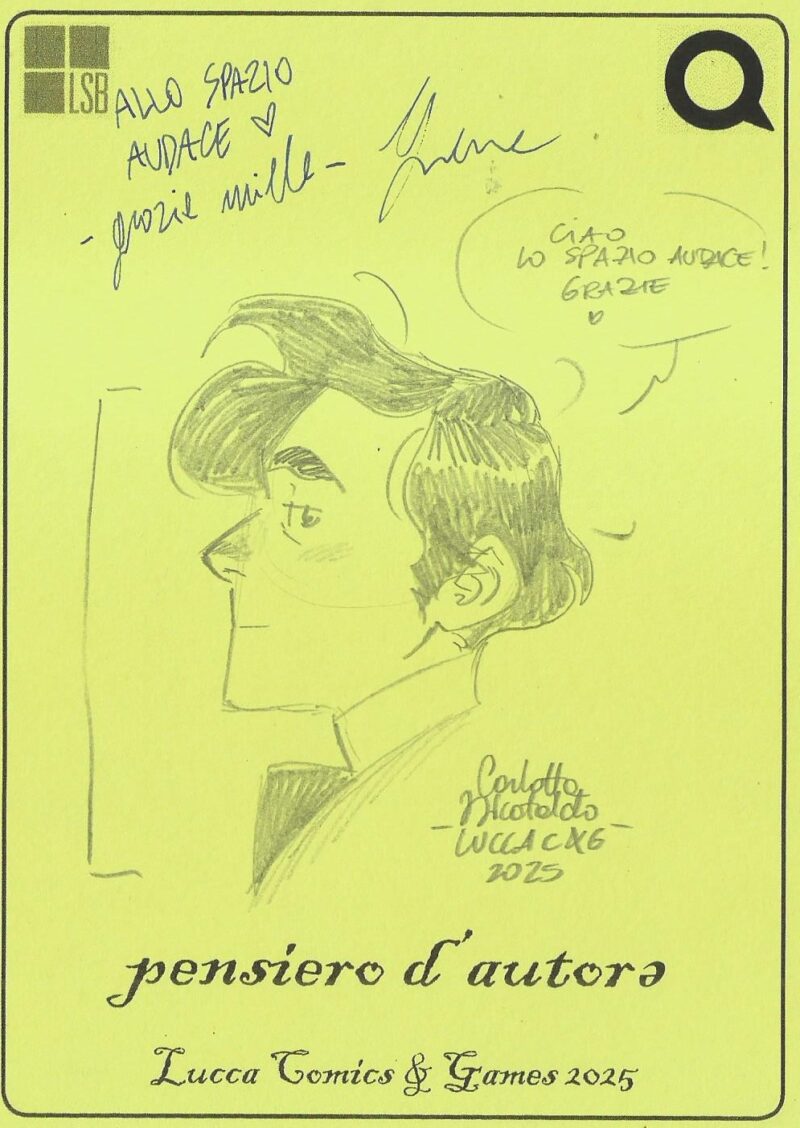 LSB
ALLO SPAZIO
AUDACE ♡
- grazie mille -
CIAO
LO SPAZIO AUDACE!
GRAZIE
♡
Carlotta
- LUCCA C&G -
2025
pensiero d'autorə
Lucca Comics & Games 2025